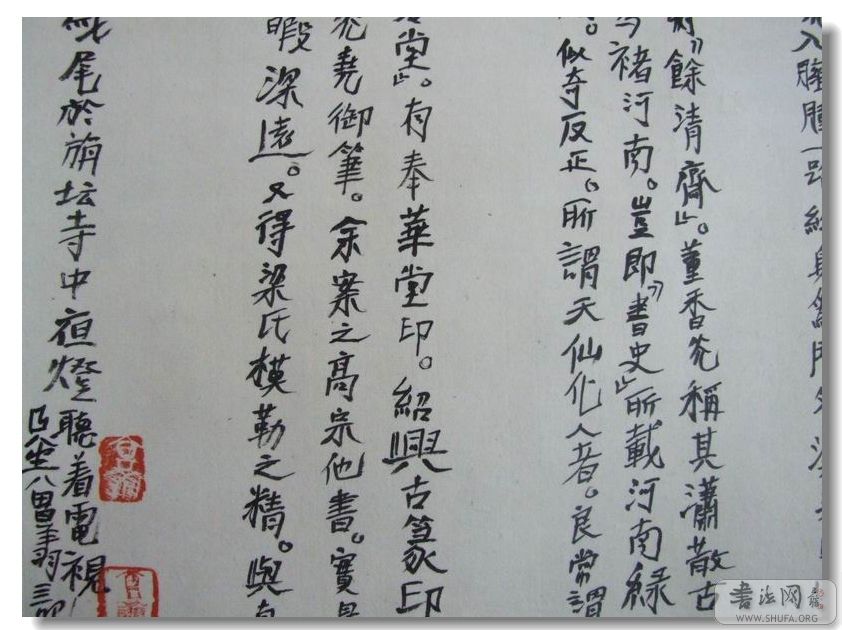 臃腫一
餘清齋」。董香光稱其瀟散古
褚河南。豈即「書史」所載河南緑
。似奇反正。所謂天仙化人者。良常謂
堂」。有奉華堂印。紹興古篆印
堯御筆。余案之高宗他書。實
暇深遠。又得梁氏模勒之精。與
尾於旃坛寺中夜燈聽着電視
書法网
WWW.SHUFA.ORG